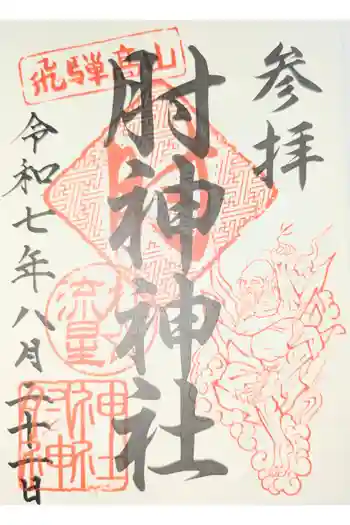 参拝
飛騨高山
肘神神社
流星
令和七年八月二十二日
肘神神社